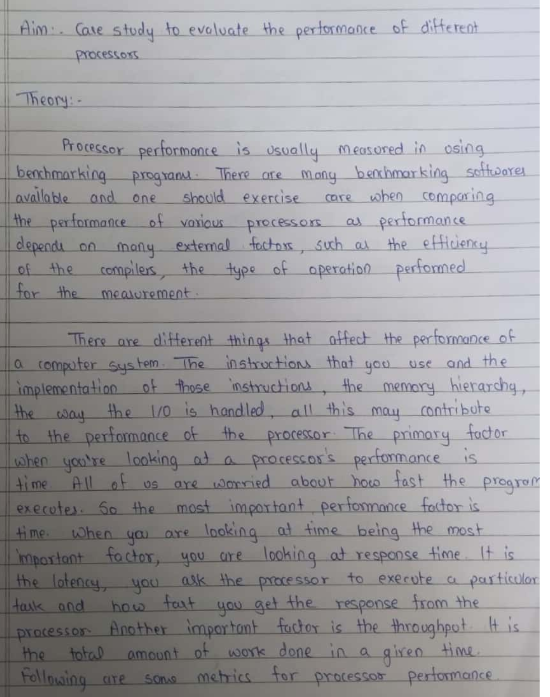 Aim:- Case study to evaluate the performance of different
processors
Theory:-
Processor performance is usually measured in using
benchmarking programs. There are many benchmarking softwares
available and one should exercise care when comparing
the performance of various processors as performance
depends on many external factors, such as the efficiency
of the compilers, the type of operation performed
for the measurement.
There are different things that affect the performance of
a computer system. The instructions that you use and the
implementation of those instructions, the memory hierarchy,
the way the I/O is handled, all this may contribute
to the performance of the processor. The primary factor
when you're looking at a processor's performance is
time. All of us are worried about how fast the program
executes. So the most important performance factor is
time. When you are looking at time being the most
important factor, you are looking at response time. It is
the latency, you ask the processor to execute a particular
task and how fast you get the response from the
processor. Another important factor is the throughput. It is
the total amount of work done in a given time.
Following are some metrics for processor performance.